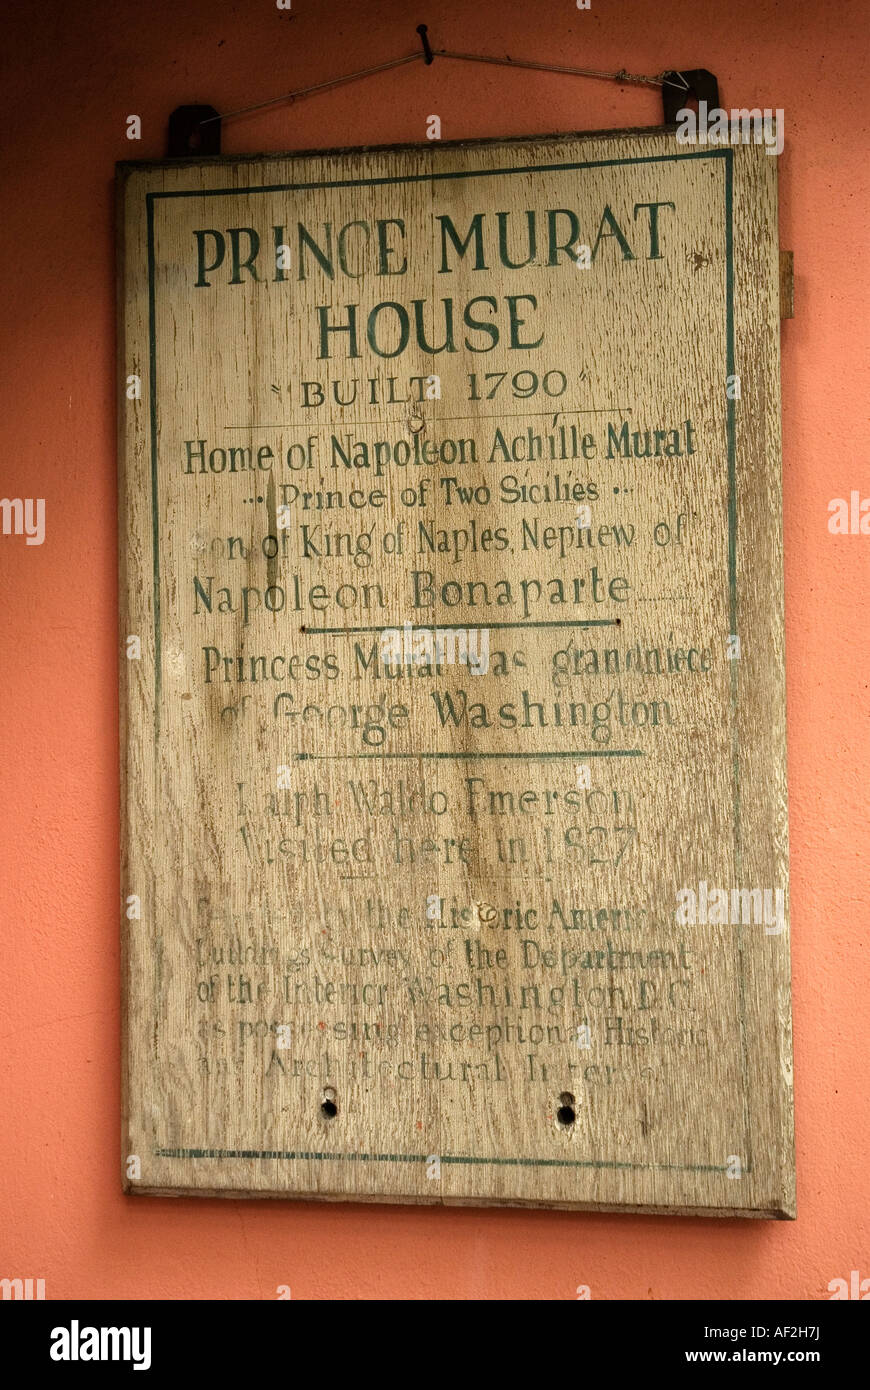 PRINCE MURAT
HOUSE
"BUILT 1790"
Home of Napoleon Achille Murat
... Prince of Two Sicilies ...
Son of King of Naples, Nephew of
Napoleon Bonaparte
Princess Murat was grandniece
of George Washington
Ralph Waldo Emerson
Visited here in 1827
by the Historic American
Buildings Survey of the Department
of the Interior Washington, D.C.
as possessing exceptional Historic
and Architectural Interest
a
alamy
Image ID: AF2H7J
www.alamy.com